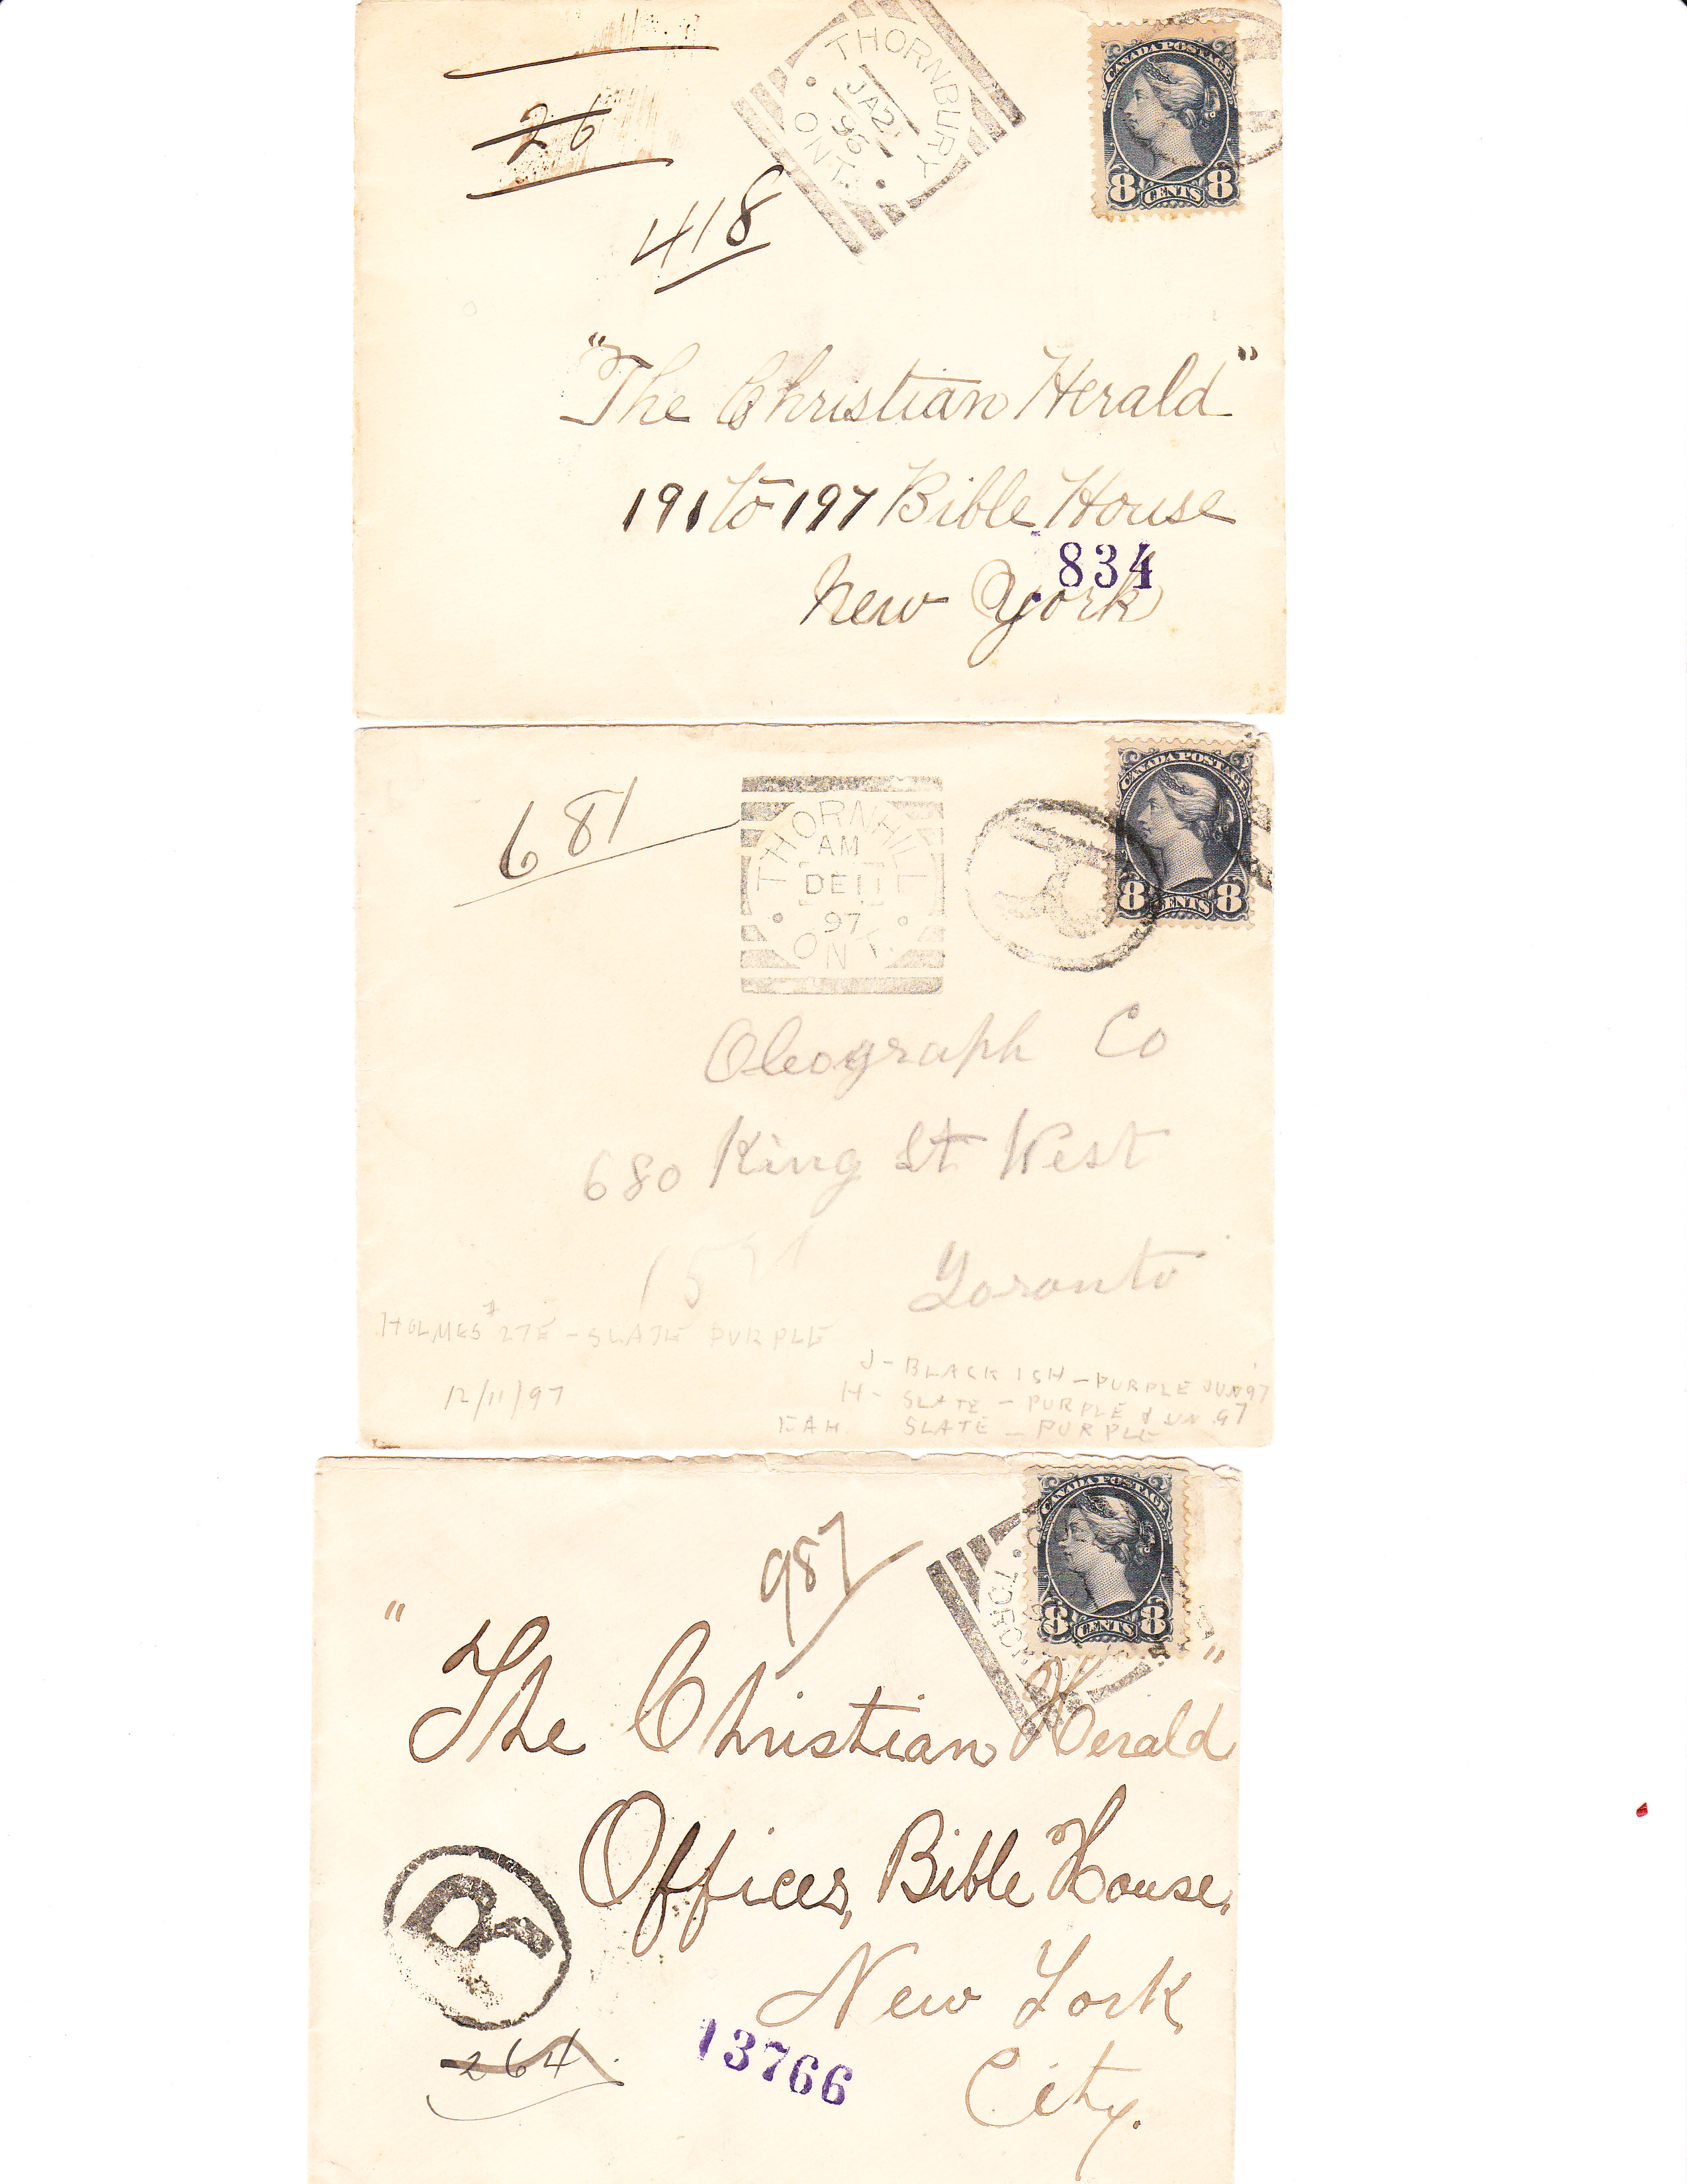 26
418
THORNBURY
JA 2
96
ONT.
CANADA POSTAGE
8 CENTS 8
"The Christian Herald"
191 to 197 Bible House
834
New York
681
THORNHILL
AM
DE 11
97
ONT.
CANADA POSTAGE
8 CENTS 8
Oleograph Co
680 King St West
Toronto
HOLMES #27E - SLATE PURPLE
12/11/97
J - BLACKISH - PURPLE JUN 97
H - SLATE - PURPLE JUN 97
EAH SLATE - PURPLE
987
CANADA POSTAGE
8 CENTS 8
TORON
"The Christian Herald"
Offices, Bible House,
R
New York
City.
264
13766